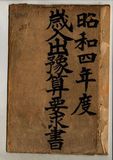 昭和四年度
歳入出豫算要求書